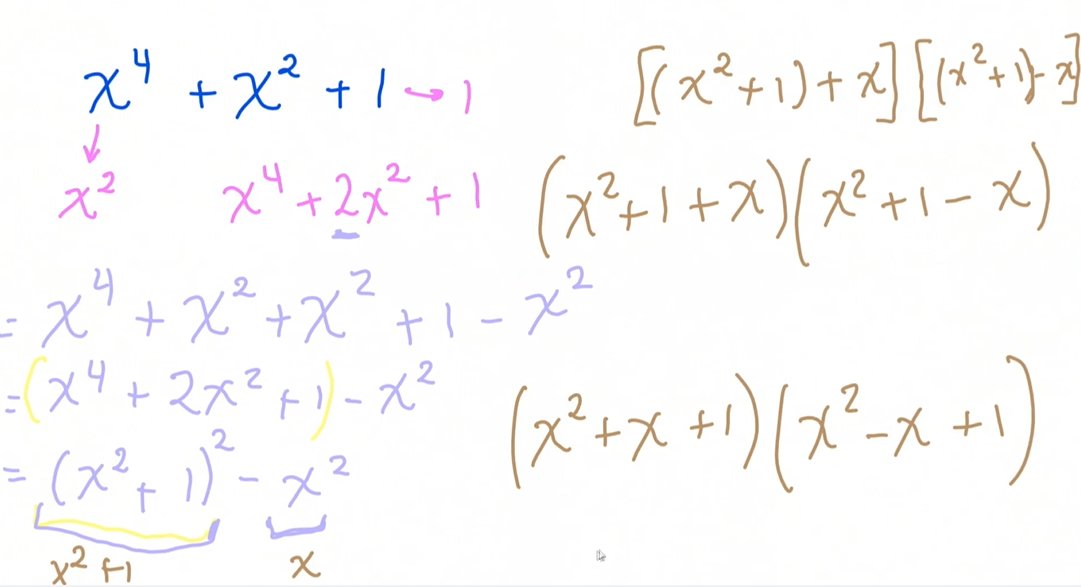 x⁴ + x² + 1 → 1
↓
x² x⁴ + 2x² + 1
= x⁴ + x² + x² + 1 - x²
= (x⁴ + 2x² + 1) - x²
= (x² + 1)² - x²
x² + 1 x
[(x² + 1) + x] [(x² + 1) - x]
(x² + 1 + x)(x² + 1 - x)
(x² + x + 1)(x² - x + 1)